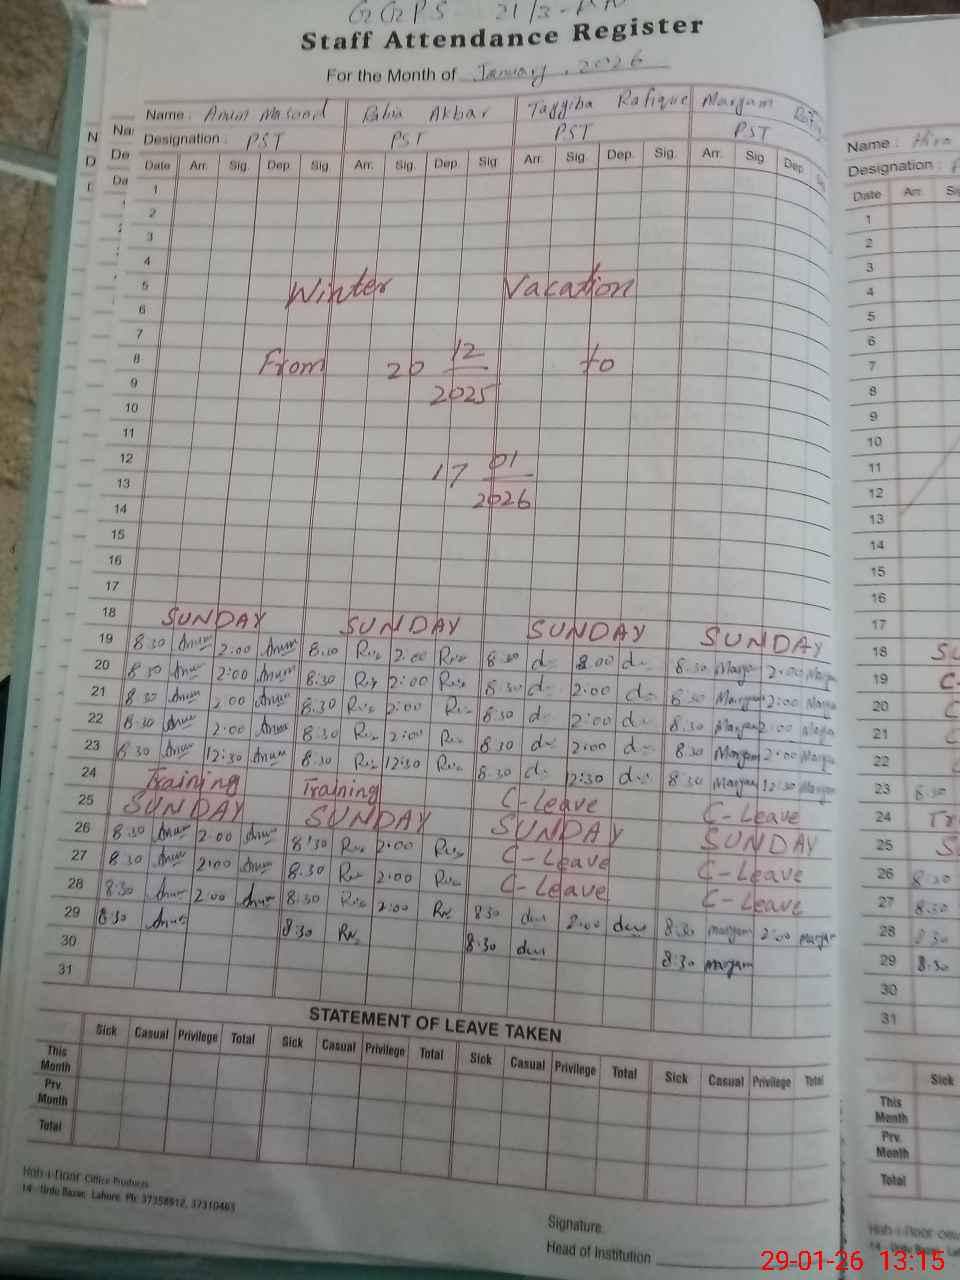 GGPS 21/3-
Staff Attendance Register
For the Month of January, 2026
Name : Anum Masood Rabia Akbar Tayyiba Rafique Maryam
Designation : PST PST PST PST
Date Arr. Sig. Dep. Sig. Arr. Sig. Dep. Sig. Arr. Sig. Dep. Sig. Arr. Sig Dep.
1
2
3
4
5 Winter Vacation
6
7
8 From 20 12 to
9 2025
10
11
12 17 01
13 2026
14
15
16
17
18 SUNDAY SUNDAY SUNDAY SUNDAY
19 8:30 Anum 2:00 Anum 8:30 2:00 8:30 8:30 Maryam 2:00 Maryam
20 8:30 Anum 2:00 Anum 8:30 2:00 8:30 2:00 8:30 Maryam 2:00 Maryam
21 8:30 Anum 2:00 Anum 8:30 2:00 8:30 2:00 8:30 Maryam 2:00 Maryam
22 8:30 Anum 2:00 Anum 8:30 2:00 8:30 2:00 8:30 Maryam 2:00 Maryam
23 8:30 Anum 12:30 Anum 8:30 12:30 8:30 12:30 8:30 Maryam 12:30 Maryam
24 Training Training C-Leave C-Leave
25 SUNDAY SUNDAY SUNDAY SUNDAY
26 8:30 Anum 2:00 Anum 8:30 2:00 C-Leave C-Leave
27 8:30 Anum 2:00 Anum 8:30 2:00 C-Leave C-Leave
28 8:30 Anum 2:00 Anum 8:30 2:00 8:30 2:00 8:30 Maryam 2:00 Maryam
29 8:30 Anum 8:30 8:30 8:30 Maryam
30
31
STATEMENT OF LEAVE TAKEN
Sick Casual Privilege Total Sick Casual Privilege Total Sick Casual Privilege Total Sick Casual Privilege Total
This Month
Prv. Month
Total
Office Products
14 - Urdu Bazar, Lahore. Ph: 37358912, 37310463
Signature.
Head of Institution
Name : Hira
Designation :
Date Arr.
1
2
3
4
5
6
7
8
9
10
11
12
13
14
15
16
17
18
19
20
21
22
23 8:30
24
25
26 8:30
27 8:30
28 8:30
29 8:30
30
31
Sick
This Month
Prv. Month
Total
29-01-26 13:15